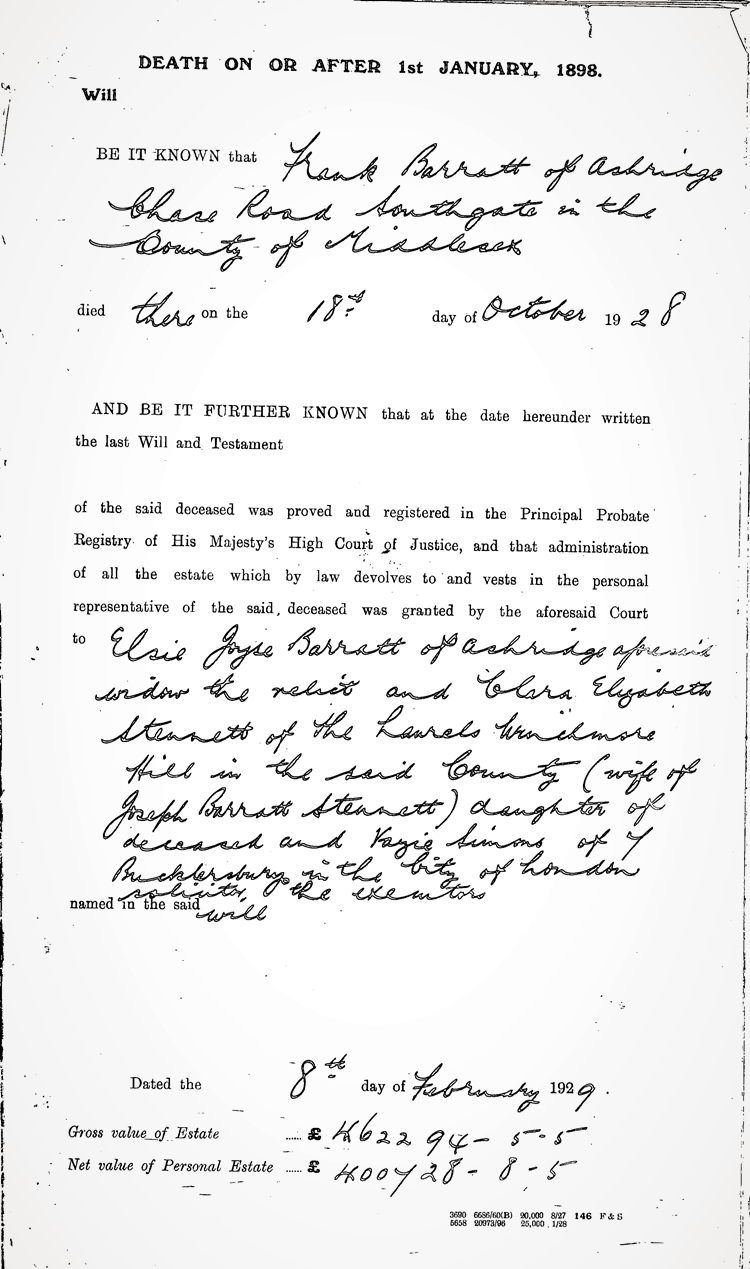 DEATH ON OR AFTER 1st JANUARY, 1898.
Will
BE IT KNOWN that Frank Barratt of Ashridge
Chase Road Southgate in the
County of Middlesex
died there on the 18th day of October 1928
AND BE IT FURTHER KNOWN that at the date hereunder written
the last Will and Testament
of the said deceased was proved and registered in the Principal Probate
Registry of His Majesty's High Court of Justice, and that administration
of all the estate which by law devolves to and vests in the personal
representative of the said deceased was granted by the aforesaid Court
to Elsie Joyse Barratt of Ashridge aforesaid
widow the relict and Clara Elizabeth
Stennett of The Laurels Winchmore
Hill in the said County (wife of
Joseph Barratt Stennett) daughter of
deceased and Simons of 7
Bucklersbury in the City of London
solicitor, the executors
named in the said will
Dated the 8th day of February 1929.
Gross value of Estate ...... £ 462294-5-5
Net value of Personal Estate ...... £ 400728-8-5
3690 6686/60(B) 20,000 8/27 146 F & S
5658 20973/96 25,000 1/28